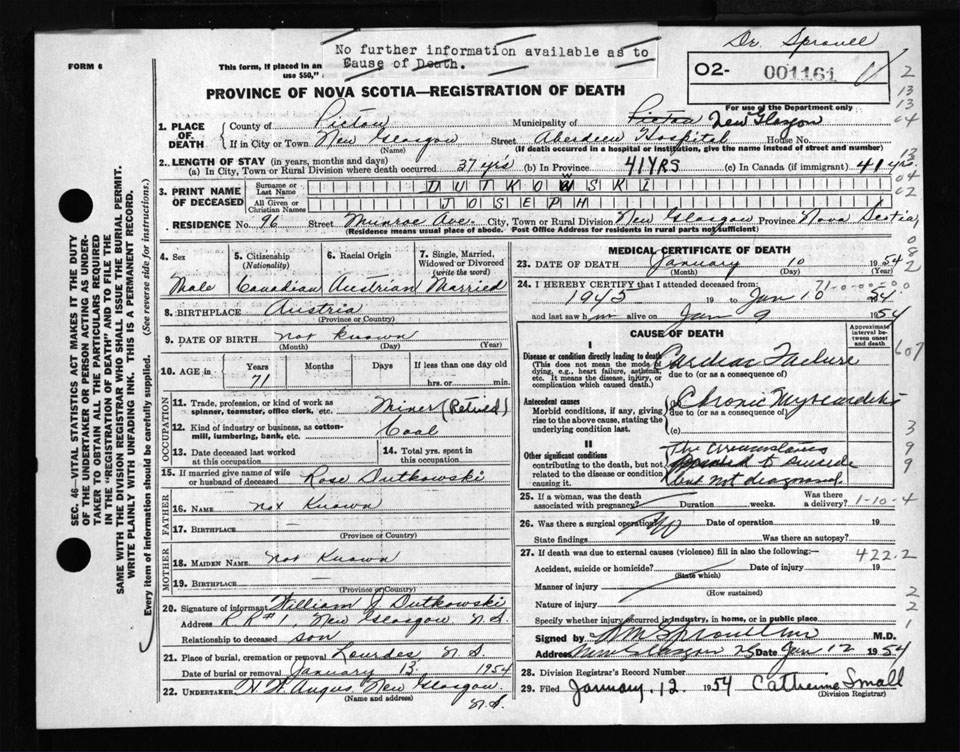 Dr. Sproull
No further information available as to
Cause of Death.
FORM 6
This form, if placed in an
use $50,"
02- 001161
For use of the Department only
PROVINCE OF NOVA SCOTIA—REGISTRATION OF DEATH
1. PLACE OF DEATH
County of Pictou Municipality of Pictou New Glasgow
If in City or Town New Glasgow (Name) Street Aberdeen Hospital House No.
(If death occurred in a hospital or institution, give the name instead of street and number)
2. LENGTH OF STAY (in years, months and days)
(a) In City, Town or Rural Division where death occurred 37 yrs (b) In Province 41 YRS (c) In Canada (if immigrant) 41 yrs
3. PRINT NAME OF DECEASED
Surname or Last Name DUTKOWSKI
All Given or Christian Names JOSEPH
RESIDENCE No. 96 Street Munroe Ave. City, Town or Rural Division New Glasgow Province Nova Scotia
(Residence means usual place of abode. Post Office Address for residents in rural parts not sufficient)
SEC. 46—VITAL STATISTICS ACT MAKES IT THE DUTY
OF THE UNDERTAKER OR PERSON ACTING AS UNDER-
TAKER TO OBTAIN ALL THE PARTICULARS REQUIRED
IN THE "REGISTRATION OF DEATH" AND TO FILE THE
SAME WITH THE DIVISION REGISTRAR WHO SHALL ISSUE THE BURIAL PERMIT.
WRITE PLAINLY WITH UNFADING INK. THIS IS A PERMANENT RECORD.
Every item of information should be carefully supplied. (See reverse side for instructions.)
4. Sex Male
5. Citizenship (Nationality) Canadian
6. Racial Origin Austrian
7. Single, Married, Widowed or Divorced (write the word) Married
8. BIRTHPLACE Austria
(Province or Country)
9. DATE OF BIRTH not known
(Month) (Day) (Year)
10. AGE in Years 71 Months Days If less than one day old
hrs. or min.
OCCUPATION
11. Trade, profession, or kind of work as
spinner, teamster, office clerk, etc. Miner (Retired)
12. Kind of industry or business, as cotton-
mill, lumbering, bank, etc. Coal
13. Date deceased last worked
at this occupation
14. Total yrs. spent in
this occupation
15. If married give name of wife
or husband of deceased Rose Dutkowski
FATHER
16. Name not Known
17. BIRTHPLACE —
(Province or Country)
MOTHER
18. MAIDEN NAME not Known
19. BIRTHPLACE —
(Province or Country)
20. Signature of informant William J Dutkowski
Address R.R #1, New Glasgow N.S.
Relationship to deceased son
21. Place of burial, cremation or removal Lourdes, N.S.
Date of burial or removal January 13 1954
22. UNDERTAKER Angus, New Glasgow. N.S.
(Name and address)
MEDICAL CERTIFICATE OF DEATH
23. DATE OF DEATH January 10 1954
(Month) (Day) (Year)
24. I HEREBY CERTIFY that I attended deceased from:
1945 19 to Jan 10 54
and last saw him alive on Jan 9 1954
CAUSE OF DEATH
Approximate interval between onset and death
I
Disease or condition directly leading to death Cardiac Failure
(This does not mean the mode of
dying, e.g., heart failure, asthenia,
etc. It means the disease, injury, or
complication which caused death.)
due to (or as a consequence of)
Antecedent causes Chronic Myocarditis
Morbid conditions, if any, giving
rise to the above cause, stating the
underlying condition last.
due to (or as a consequence of)
(c)
II
Other significant conditions
contributing to the death, but not
related to the disease or condition
causing it.
The circumstances
pointed to suicide
but not diagnosed
25. If a woman, was the death
associated with pregnancy? Duration weeks. Was there a delivery? 1-10-4
26. Was there a surgical operation? No Date of operation 19
State findings Was there an autopsy?
27. If death was due to external causes (violence) fill in also the following:— 422.2
Accident, suicide or homicide? (State which) Date of injury 19
Manner of injury (How sustained)
Nature of injury
Specify whether injury occurred in industry, in home, or in public place
Signed by WM Sproull M.D.
Address New Glasgow NS Date Jan 12 1954
28. Division Registrar's Record Number
29. Filed January. 12. 1954 Catherine Small
(Division Registrar)